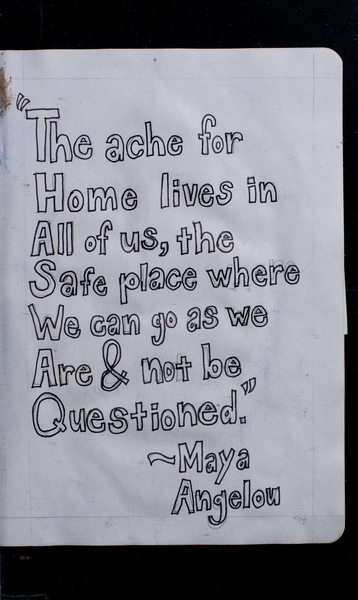 "The ache for
Home lives in
All of us, the
Safe place where
We can go as we
Are & not be
Questioned."
~Maya
Angelou